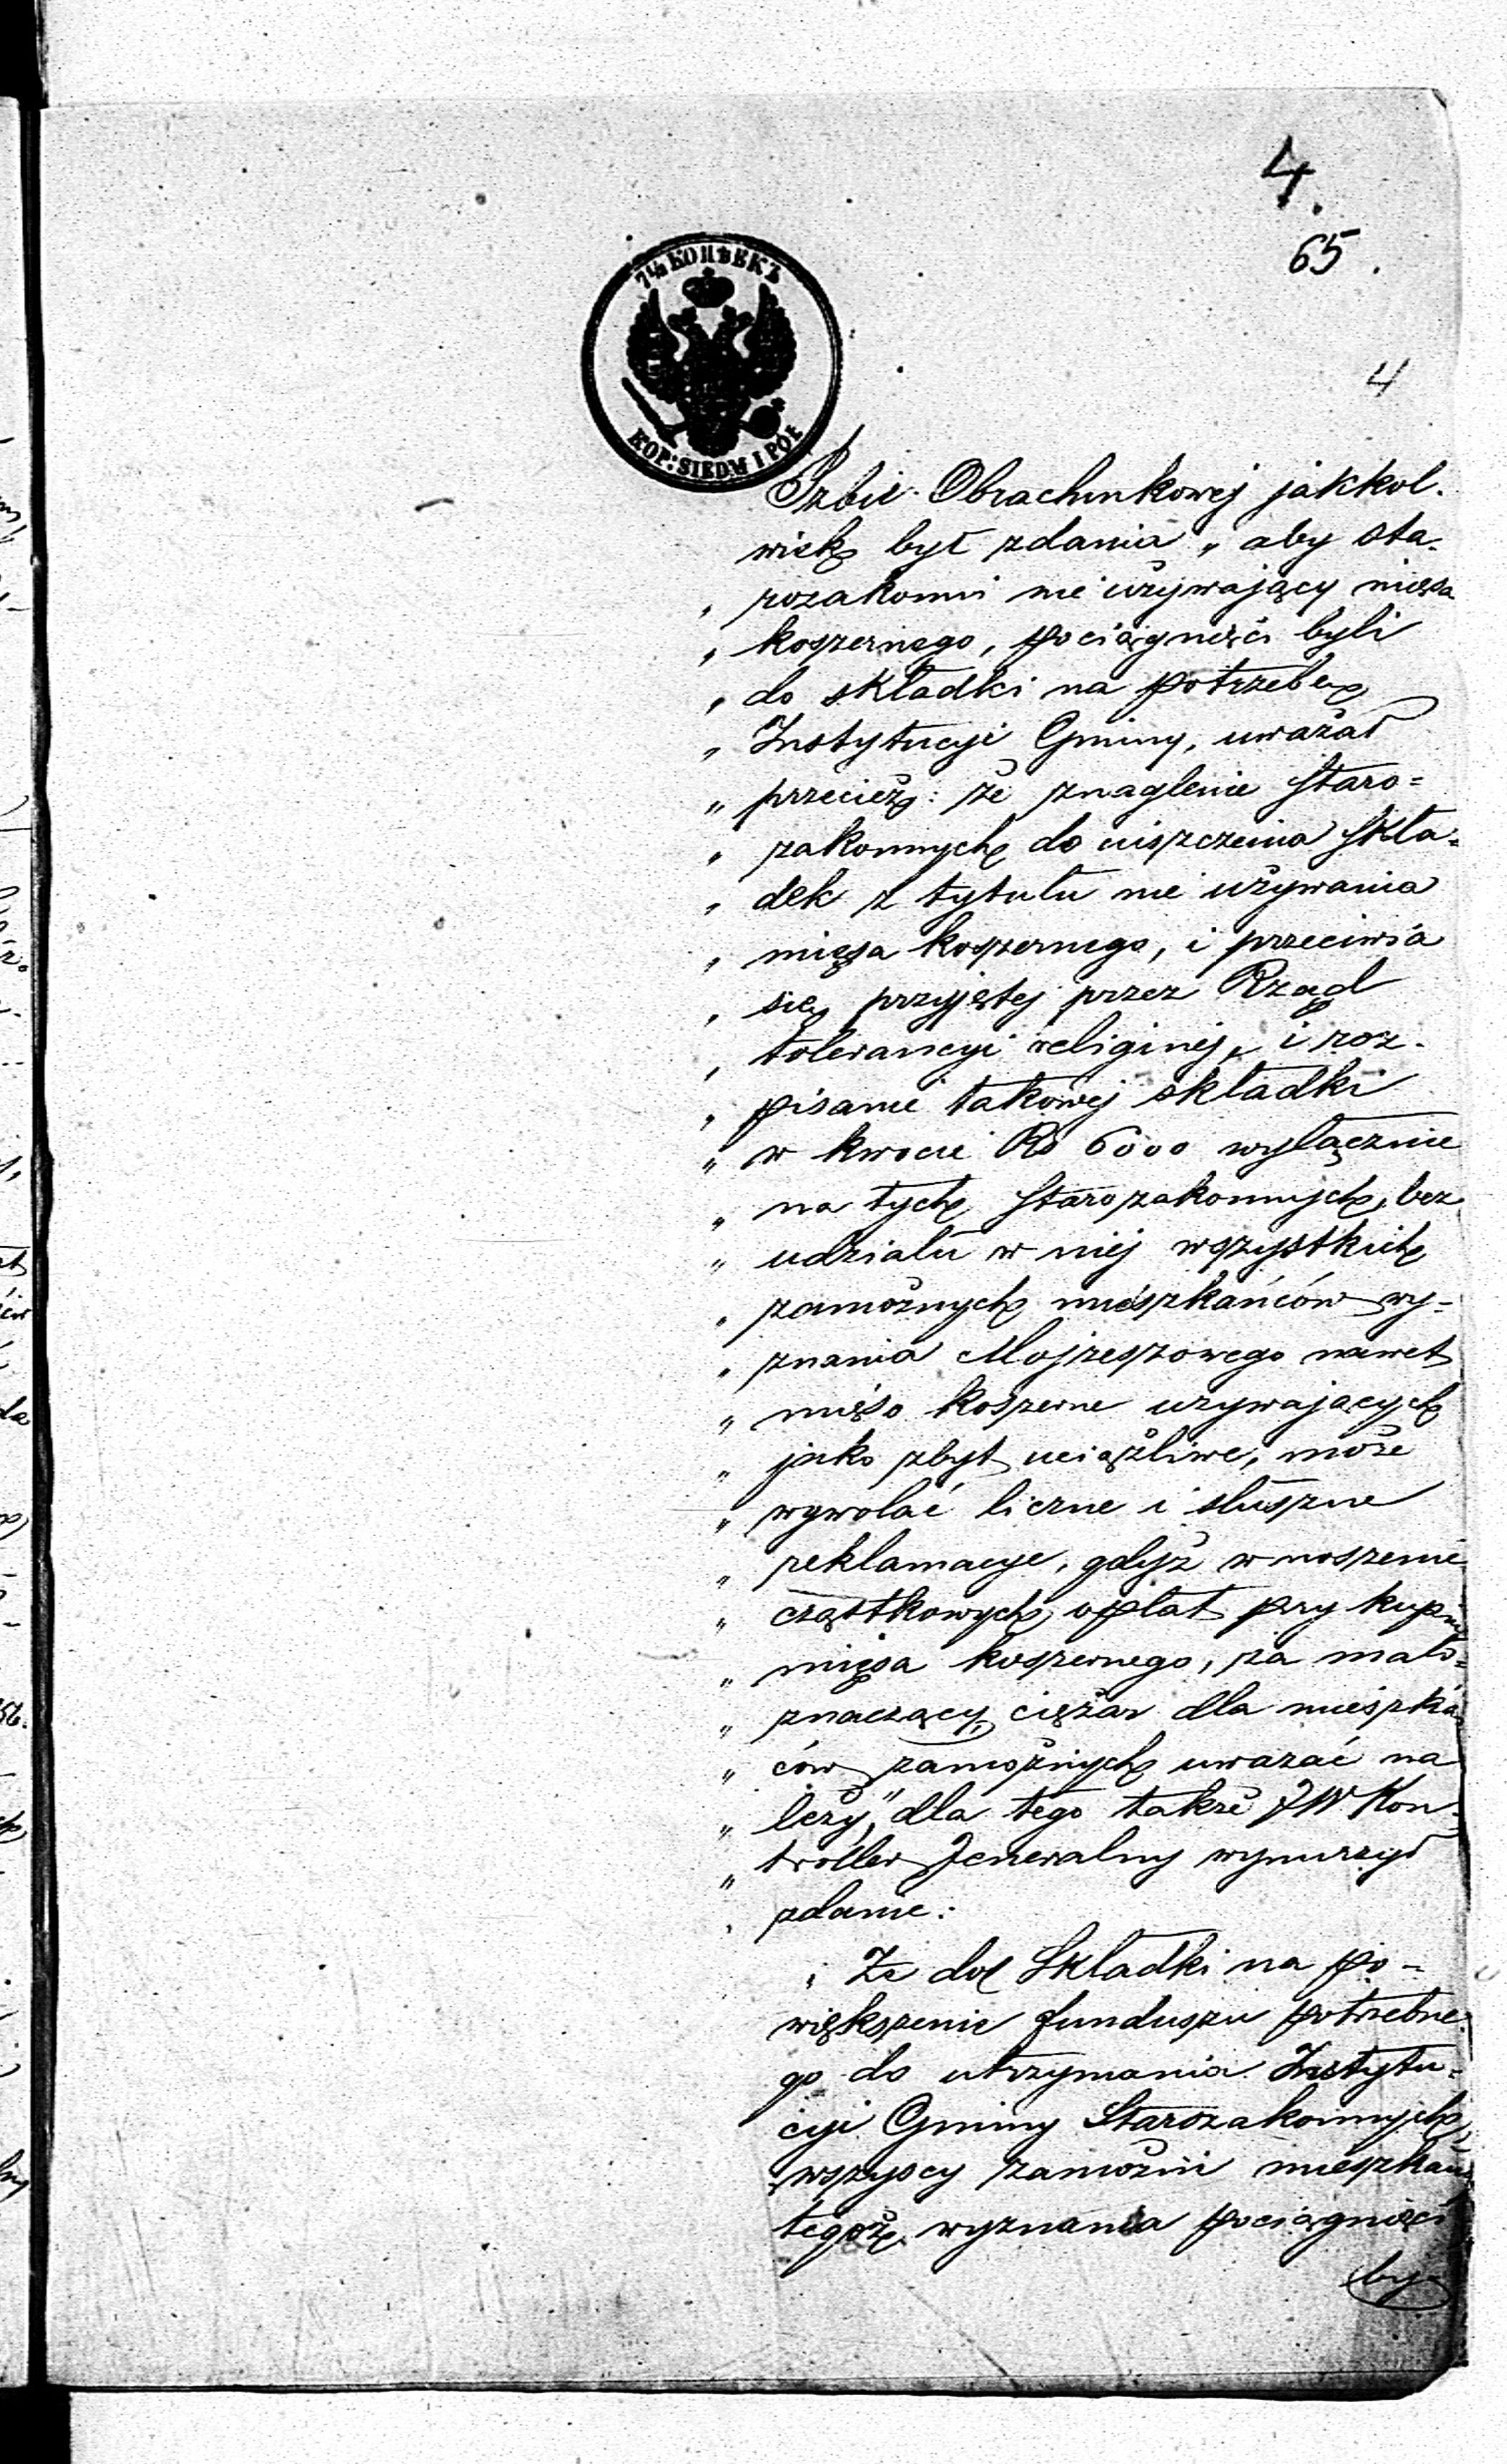 4.
65.
4
7½ КОПѢЕКЪ
KOP: SIEDM I PÓŁ
Izbie Obrachunkowej jakkol-
wiek był zdania „aby sta-
„ rozakonni nie używający mięsa
„ koszernego, pociągnięci byli
„ do składki na potrzeby
„ Instytucyi Gminy, uważał
„ przecież: że znaglenie staro=
„ zakonnych do uiszczenia skła=
„ dek z tytułu nie używania
„ mięsa koszernego, i przeciwia
„ się przyjętej przez Rząd
„ tolerancyi religinej, i roz-
„ pisanie takowej składki
„ w kwocie Rs 6000 wyłącznie
„ na tych starozakonnych, bez
„ udziału w niej wszystkich
„ zamożnych mieszkańców wy=
„ znania Mojżeszowego nawet
„ mięso koszerne używających
„ jako zbyt uciążliwe, może
„ wywołać liczne i słuszne
„ reklamacye, gdyż wnoszenie
„ cząstkowych opłat przy kupnie
„ mięsa koszernego, za mało=
„ znaczący ciężar dla mieszkań
„ ców zamożnych uważać na
„ leży," dla tego także JW Kon=
„ troller Jeneralny wynurzył
„ zdanie:
„ Że do Składki na po=
większenie funduszu potrzebne
go do utrzymania Instytu=
cyi Gminy Starozakonnych,
wszyscy zamożni mieszkańcy
tegoż wyznania pociągnięci
by=